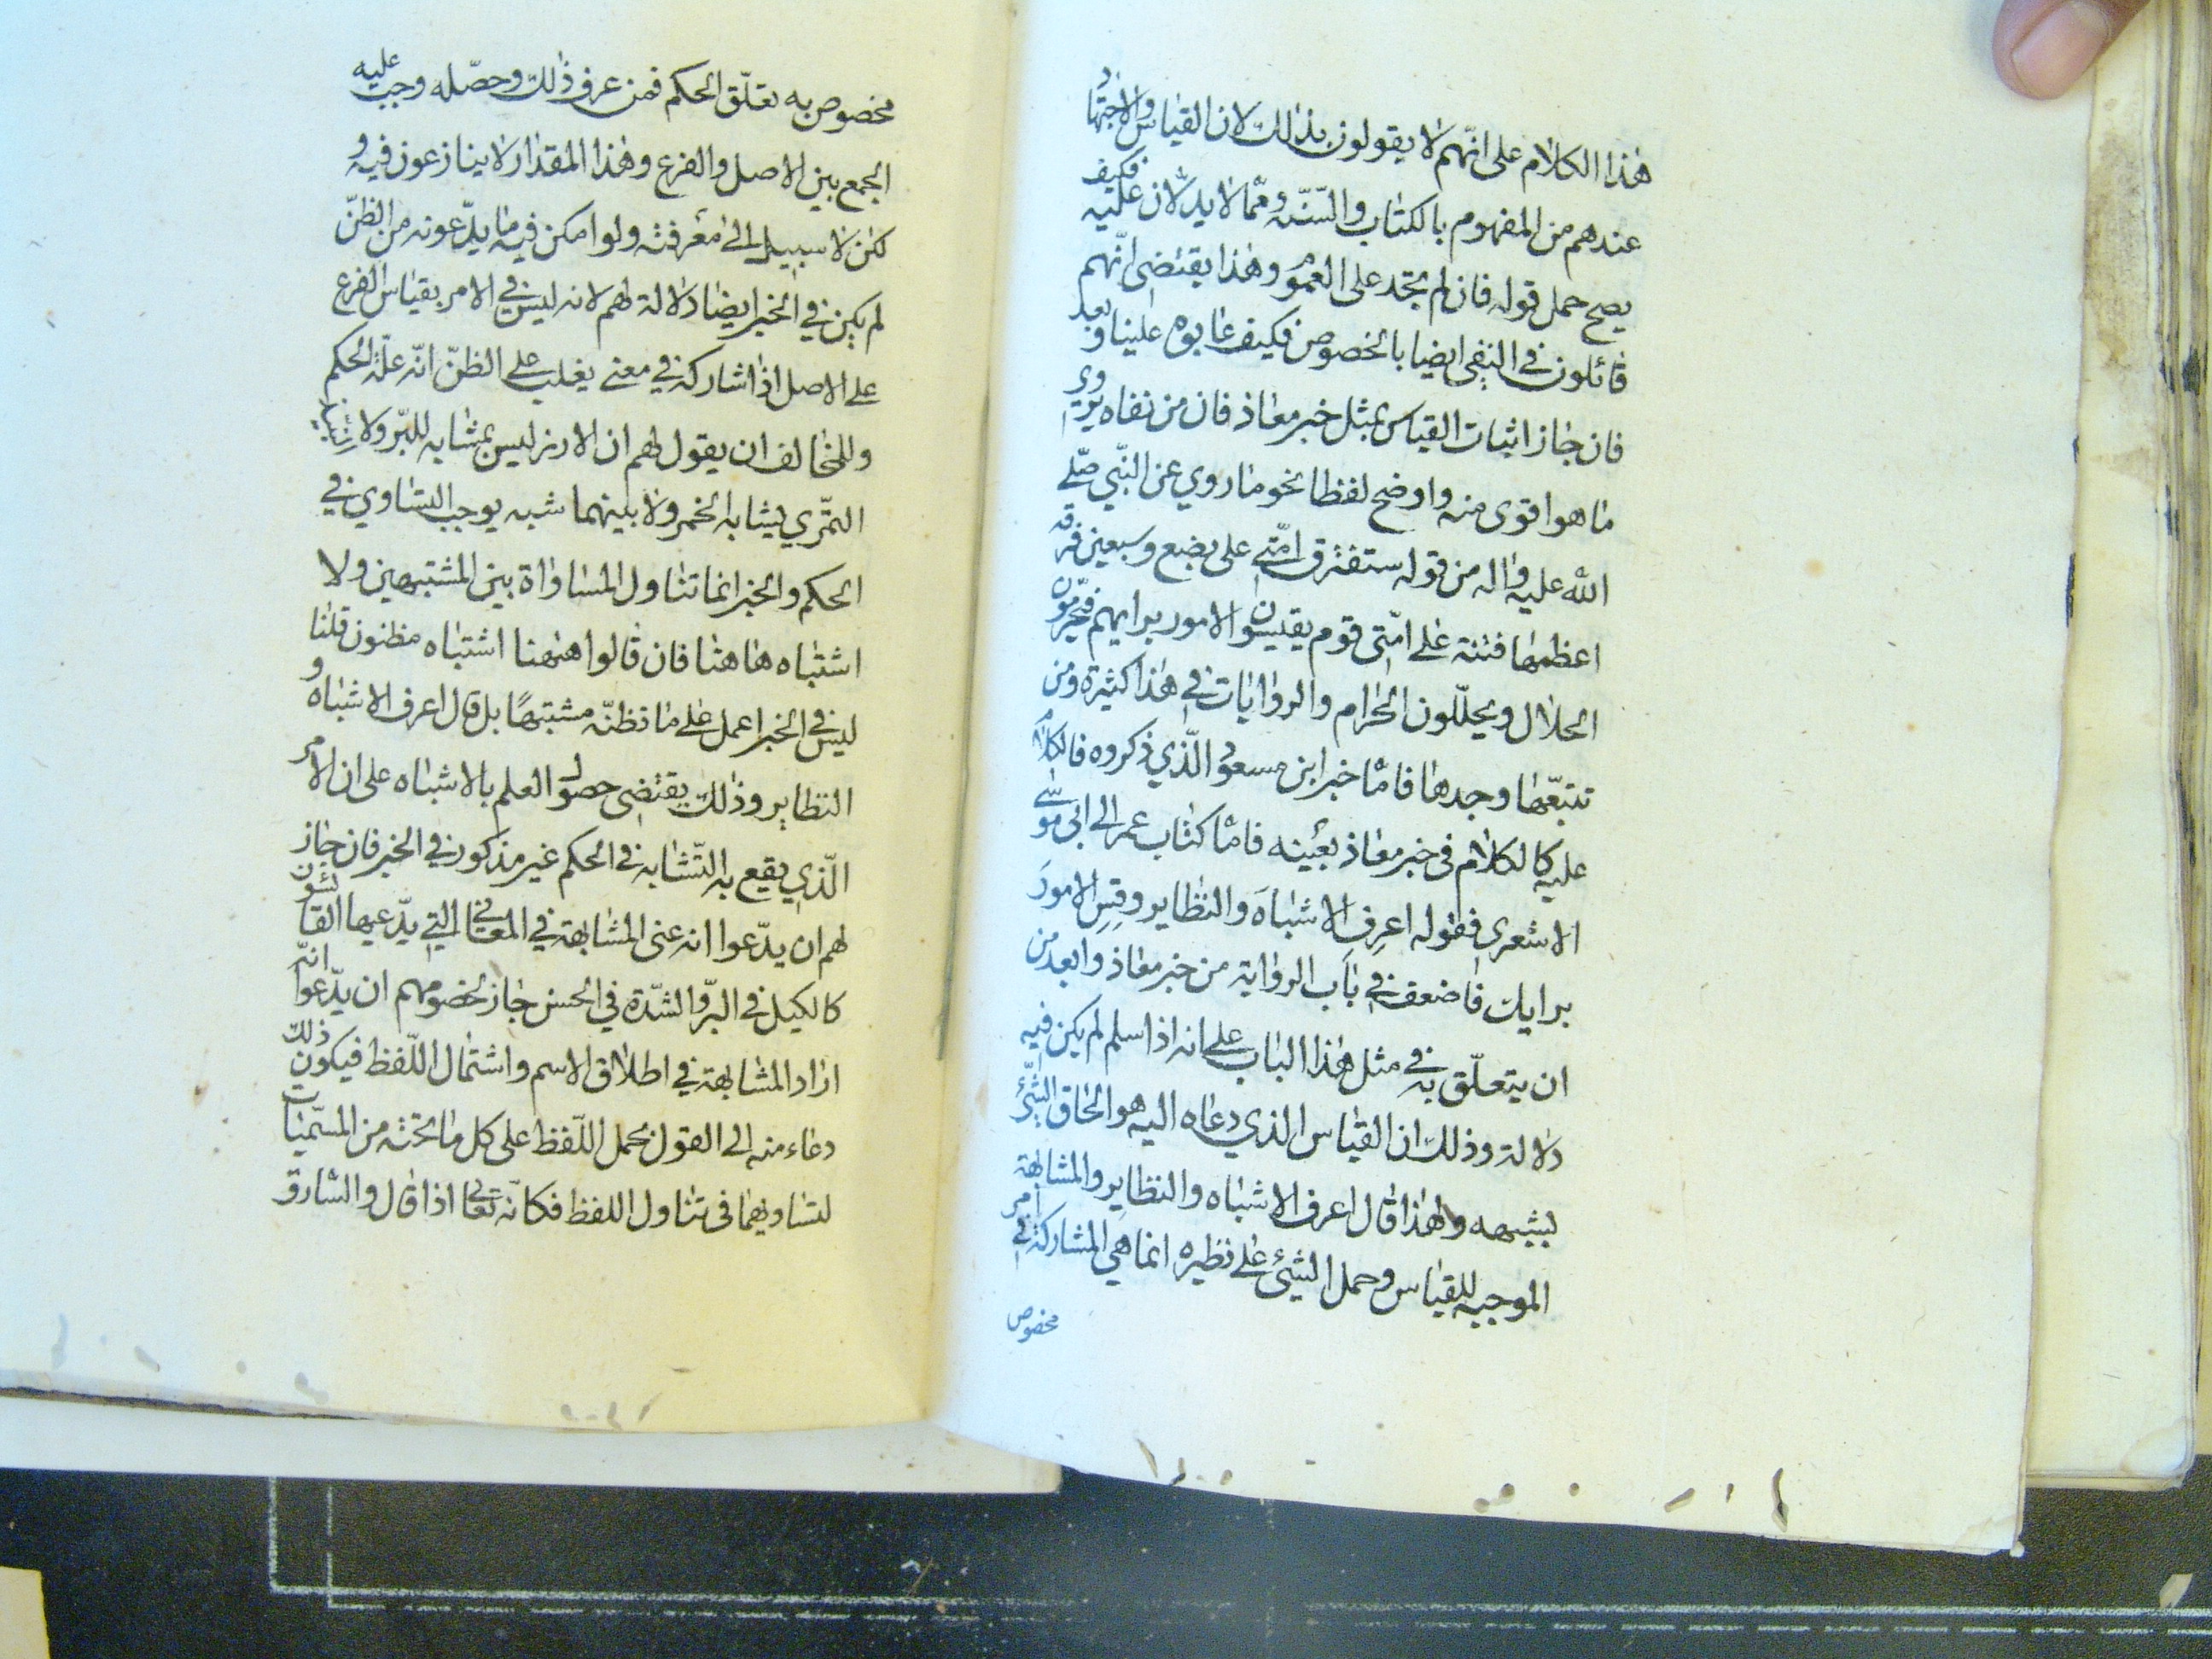 هذا الكلام على انّهم لا يقولون بذلك لان القياس والاجتهاد
عندهم من المفهوم بالكتاب والسّنّة وممّا لا يدلّان عليه فكيف
يصح حمل قوله فان لم تجد على العموم وهذا يقتضى انّهم
قائلون في النفى ايضا بالخصوص فكيف عابوه علينا وبعد
فان جاز اثبات القياس بمثل خبر معاذ فان من نفاه يروي
ما هو اقوى منه واوضح لفظا نحو ما روي عن النّبي صلّى
الله عليه واله من قوله ستفترق امّتي على بضع وسبعين فرقة
اعظمها فتنة على امّتي قوم يقيسون الامور برايهم فيحرّمون
الحلال ويحلّلون الحرام والروايات في هذا كثيرة ومن
تتبعّها وجدها فامّا خبر ابن مسعود الّذي ذكروه فالكلام
عليه كالكلام فى خبر معاذ بعينه فامّا كتاب عمر الى ابى موسى
الاشعرى فقوله اعرف الاشباه والنظاير وقس الامور
برايك فاضعف في باب الرواية من خبر معاذ وابعد من
ان يتعلّق به في مثل هذا الباب على انه اذا سلم لم يكن فيه
دلالة وذلك ان القياس الذي دعاه اليه هو الحاق الشّئ
بشبهه ولهذا قال اعرف الاشباه والنظاير والمشابهة
الموجبه للقياس وحمل الشئ على نظيره انما هي المشاركة في امر
مخصوص
مخصوص به تعلّق الحكم فمن عرف ذلك وحصّله وجب عليه
الجمع بين الاصل والفرع وهذا المقدار لا ينازعون فيه و
لكن لا سبيل الى معرفته ولو امكن فيه ما يدّعونه من الظنّ
لم يكن في الخبر ايضا دلالة لهم لانه ليس في الامر بقياس الفرع
على الاصل اذا شاركه في معنى يغلب على الظنّ انّه علّة الحكم
وللمخالف ان يقول لهم ان الارز ليس بمشابه للبّر ولا
التمّري يشابه الخمر ولا بينهما شبه يوجب التساوي في
الحكم والخبر انما تناول المساواة بين المشتبهين ولا
اشتباه هاهنا فان قالوا ههنا اشتباه مظنون قلنا
ليس في الخبر اعمل على ما تظنّه مشتبهًا بل قال اعرف الاشباه و
النظاير وذلك يقتضى حصول العلم بالاشباه على ان الامر
الّذي يقع به التّشابه في الحكم غير مذكور في الخبر فان جاز
لهم ان يدّعوا انه عنى المشابهة في المعاني التي يدّعيها القائسون
كالكيل في البرّ والشدّة في الخمر جاز لخصومهم ان يدّعوا انّه
اراد المشابهة في اطلاق الاسم واشتمال اللّفظ فيكون ذلك
دعاء منه الى القول بحمل اللّفظ على كل ما تحته من المسمّيات
لتساويهما فى تناول اللفظ فكانّه تعالى اذا قال والسّارق